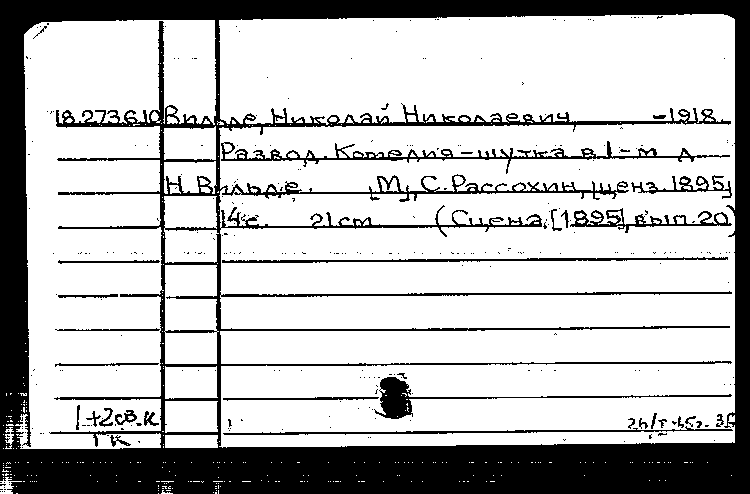 18.273.6.10 Вильде, Николай Николаевич, –1918.
Развод. Комедия-шутка в 1-м д.
Н. Вильде. [М], С. Рассохин, [ценз. 1895]
14 с. 21 cm (Сцена, [1895], вып. 20)
1+2св.к
ГК